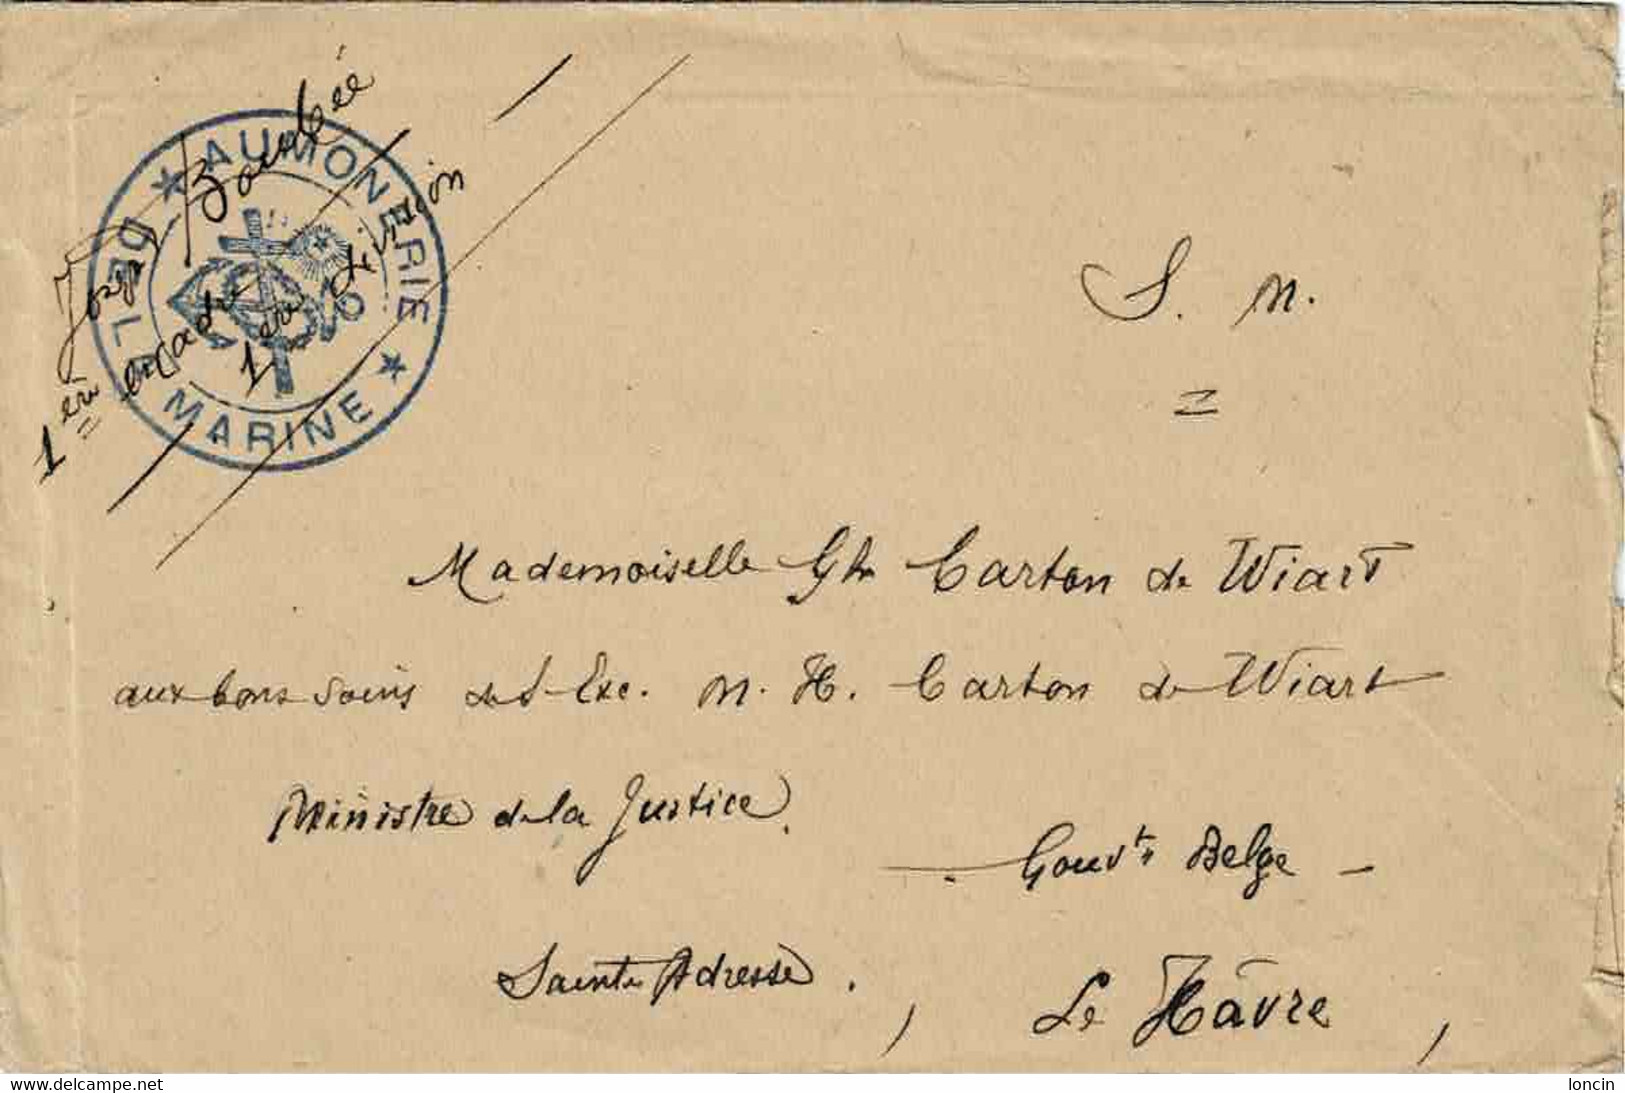 ★ AUMÔNERIE ★
DE LA MARINE
Bourée
1ère escadre
1ère division
S. M.
Mademoiselle Gh Carton de Wiart
aux bons soins de S. Exc. M. H. Carton de Wiart
Ministre de la Justice.
— Gouvt Belge —
Sainte Adresse.
Le Hâvre,
www.delcampe.net
loncin